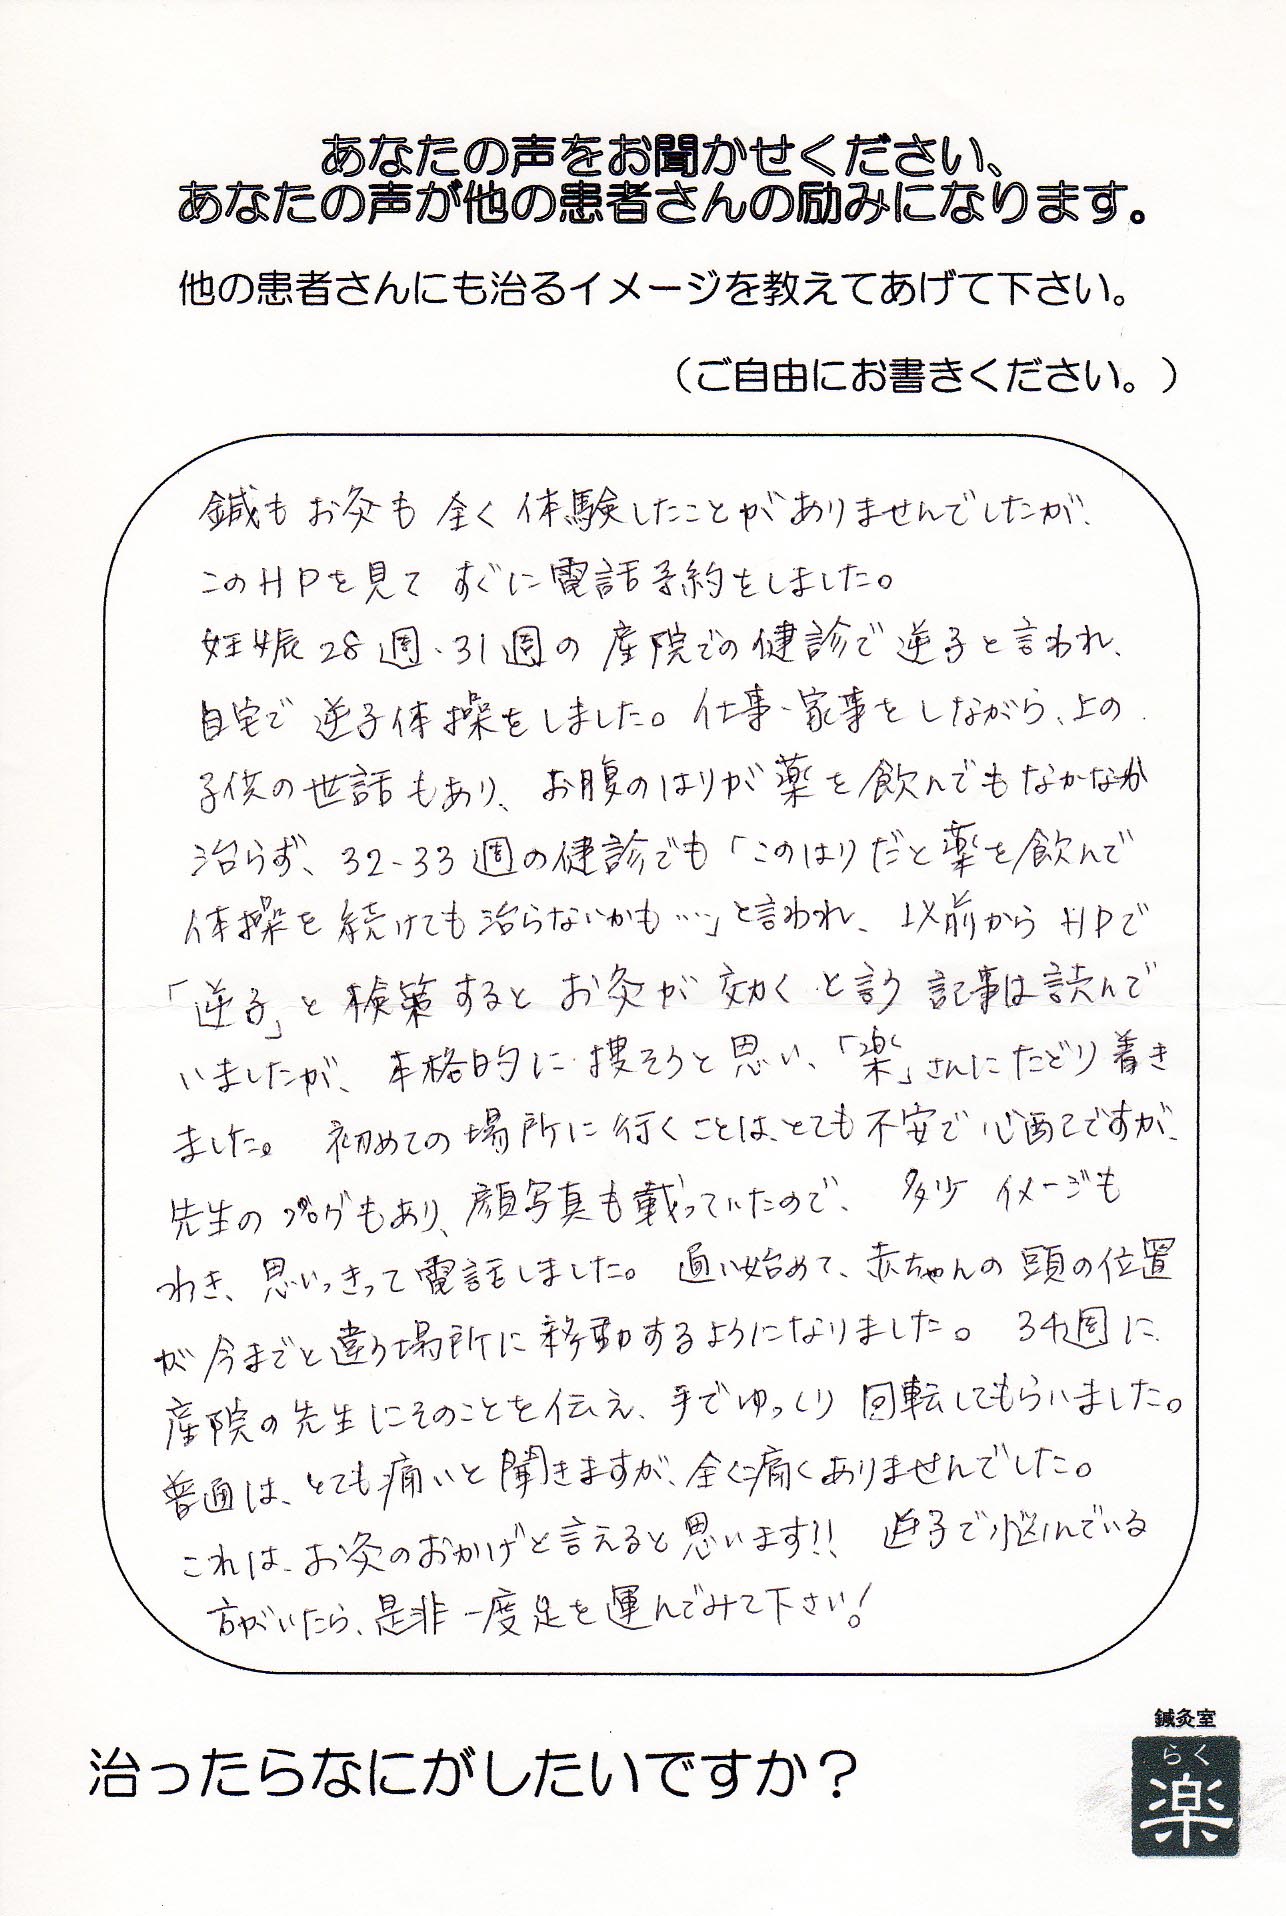 あなたの声をお聞かせください、
あなたの声が他の患者さんの励みになります。
他の患者さんにも治るイメージを教えてあげて下さい。
（ご自由にお書きください。）
鍼もお灸も全く体験したことがありませんでしたが、
このHPを見てすぐに電話予約をしました。
妊娠28週、31週の産院での健診で逆子と言われ、
自宅で逆子体操をしました。仕事、家事をしながら、上の
子供の世話もあり、お腹のはりが薬を飲んでもなかなか
治らず、32-33週の健診でも「このはりだと薬を飲んで
体操を続けても治らないかも…」と言われ、以前からHPで
「逆子」と検索するとお灸が効くと言う記事は読んで
いましたが、本格的に捜そうと思い、「楽」さんにたどり着き
ました。初めての場所に行くことは、とても不安で心配ですが、
先生のブログもあり、顔写真も載っていたので、多少イメージも
わき、思いきって電話しました。通い始めて、赤ちゃんの頭の位置
が今までと違う場所に移動するようになりました。34週に
産院の先生にそのことを伝え、手でゆっくり回転してもらいました。
普通は、とても痛いと聞きますが、全く痛くありませんでした。
これは、お灸のおかげと言えると思います!! 逆子で悩んでいる
方がいたら、是非一度足を運んでみて下さい!
治ったらなにがしたいですか？
鍼灸室
らく
楽